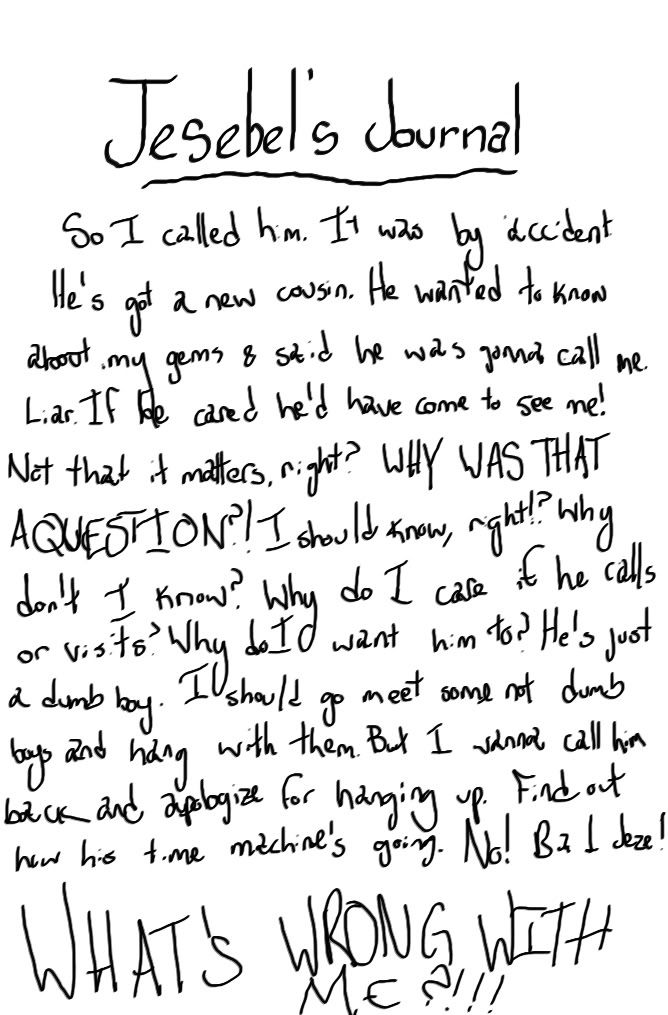 Jesebel's Journal
So I called him. It was by accident
He's got a new cousin. He wanted to know
about my gems & said he was gonna call me.
Liar. If he cared he'd have come to see me!
Not that it matters, right? WHY WAS THAT
A QUESTION?! I should know, right!? Why
don't I know? Why do I care if he calls
or visits? Why do I want him to? He's just
a dumb boy. I should go meet some not dumb
boys and hang with them. But I wanna call him
back and apologize for hanging up. Find out
how his time machine's going. No! Bad I
WHAT'S WRONG WITH
ME?!!!